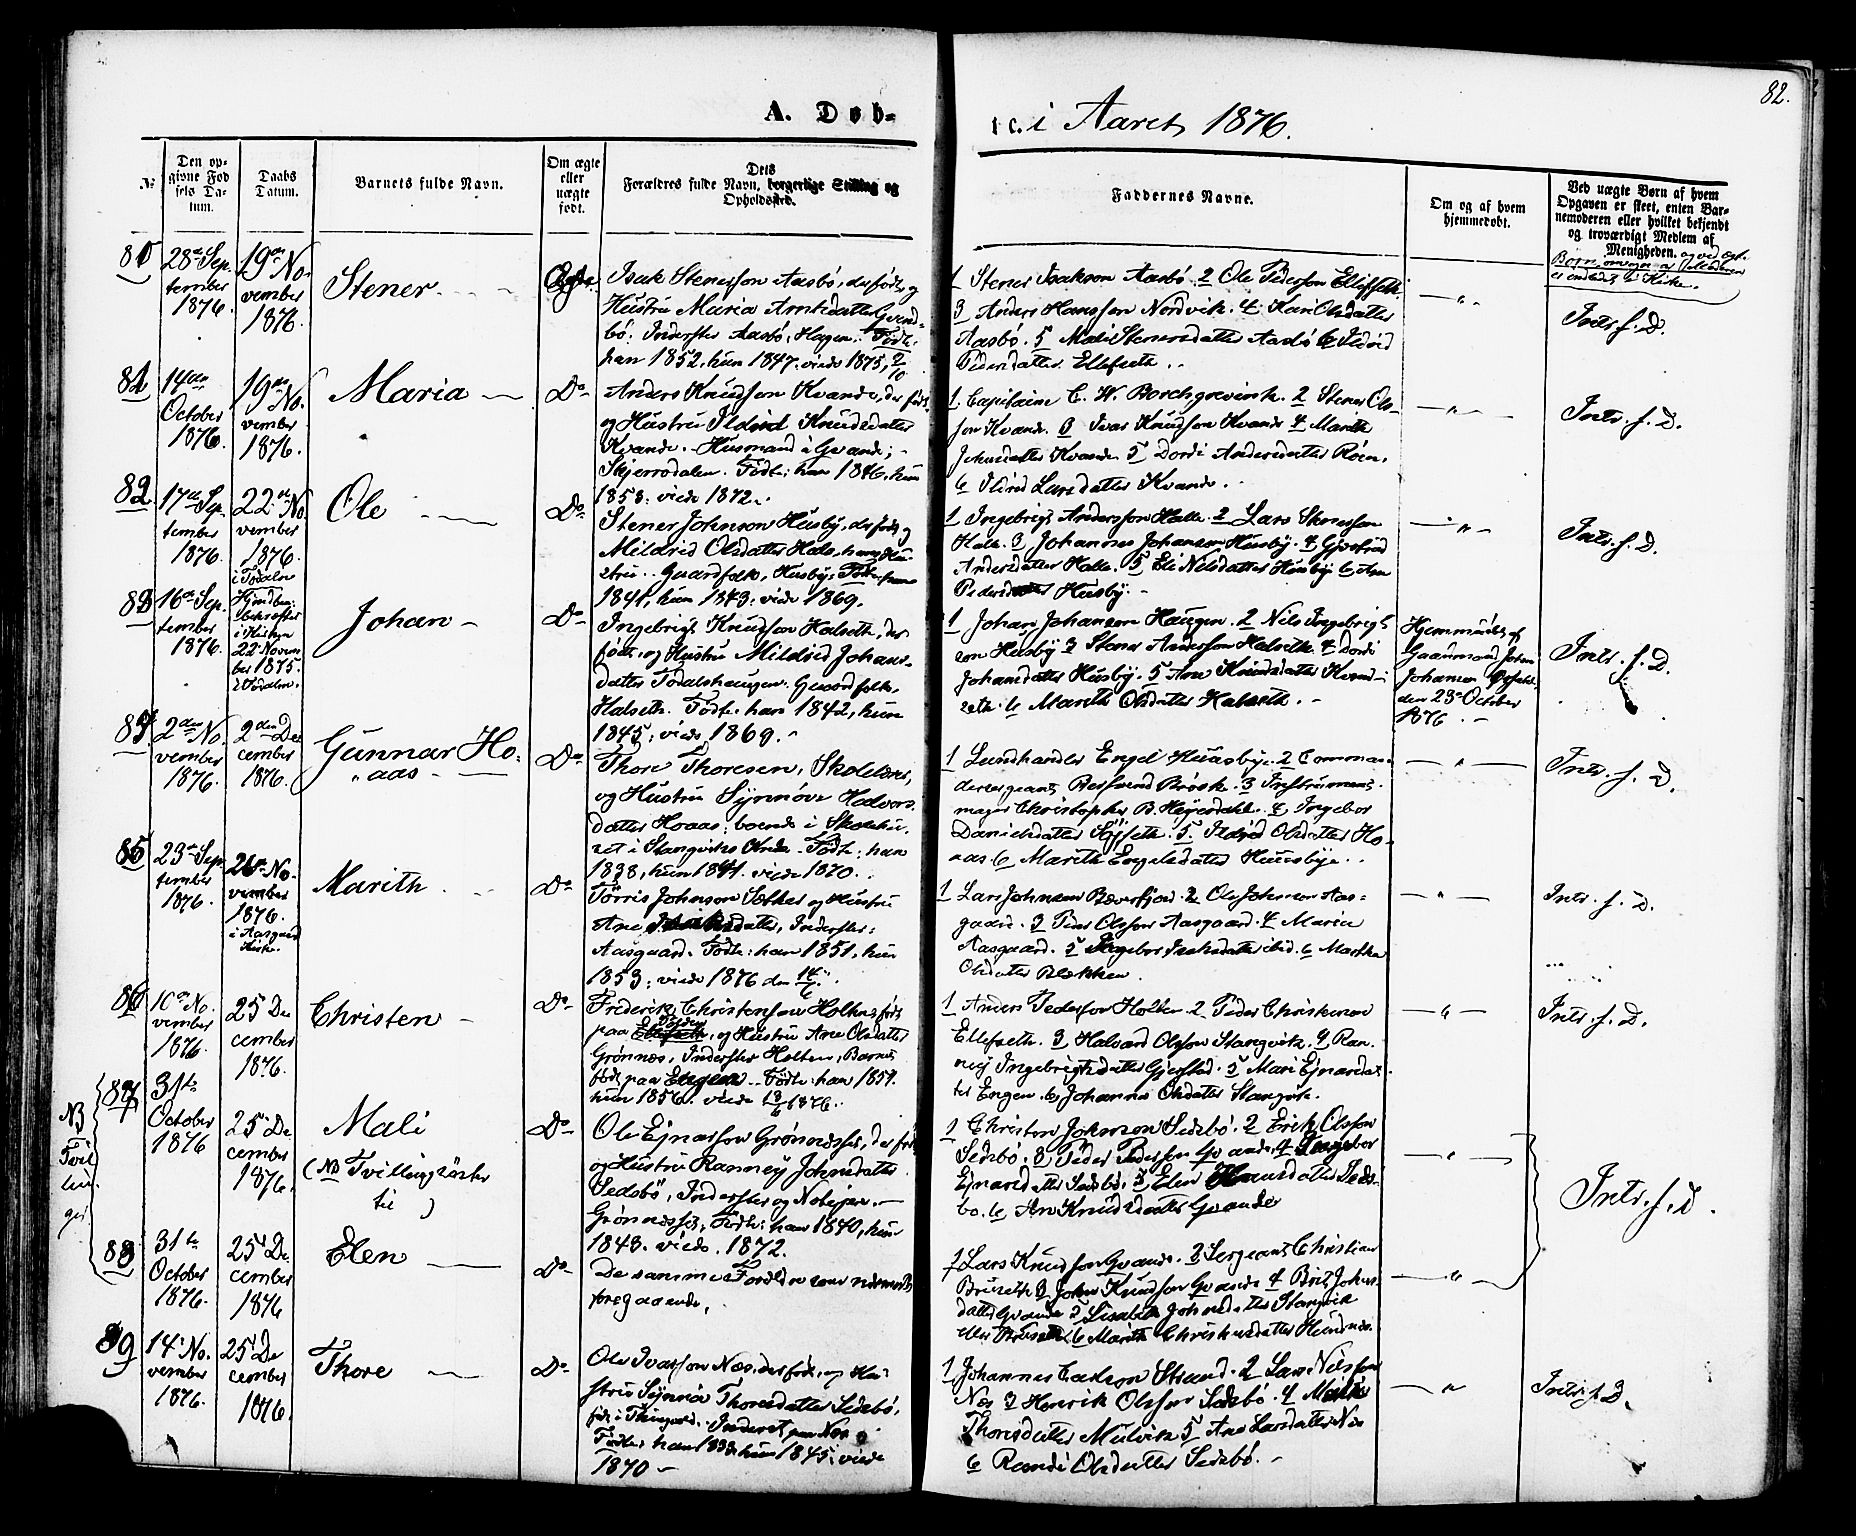 82.
A. Døb-
te. i Aaret 1876.
№
Den op-
givne Fød
sels Da-
tum.
Daabs
Datum.
Barnets fulde Navn.
Om ægte
eller
uægte
født.
Dets
Forældres fulde Navn, borgerlige Stilling og
Opholdssted.
Faddernes Navne.
Om og af hvem
hjemmedøbt.
Ved uægte Børn af hvem
Opgaven er skeet, enten Bar-
nemoderen eller hvilket bekjendt
og troværdigt Medlem af
Menigheden.
80
28de Sep-
tember
1876.
19de No-
vember
1876.
Stener
Isak Stenersøn Aasbø, der født, og
Hustru Maria
bø. Inderster Aasbø, Hagen. Født:
han 1852, hun 1847. viede 1875,
1 Stener Isakson Aasbø. 2 Ole Pederson Ellefseth.
3 Anders Hansson Nordvik. 4 Kari Olsdatter
Aasbø. 5 Mali Stenersdatter Aasbø 6 Ildrid
Pedersdatter Ellefseth.
Intr. f. D.
81
14de
October
1876.
19de No-
vember
1876.
Maria
Do
Anders Knudsøn Kvande, der født,
og Hustru Ildrid Knudsdatter
Kvande. Husmand i Gvande;
Skjerrodalen. Født: han 1846, hun
1853: viede 1872.
1. Capitaine C. W. Borchgrevink. 2 Stener Ols-
søn Kvande. 3 Ivar Knudsøn Kvande 4 Marith
Johnsdatter Kvande. 5 Dordi Andersdatter Røen.
6 Ildrid Larsdatter Kvande.
Intr. f. D.
82.
17de Sep-
tember
1876.
22de No-
vember
1876.
i Todalen
Ole
Do
Stener Johnsøn Husby, der født, og
Mildrid Olsdatter Hals, hans Hu-
stru. Gaardfolk, Husby. Født: han
1841, hun 1843: viede 1869.
1 Ingebrigt Andersson Halle. 2 Lars Stenersøn
Halle. 3 Johannes Johansen Husby. 4 Gjertrud
Andersdatter Halle. 5 Eli Nilsdatter Husby 6 Ane
Pedersdatter Husby.
Intr. f. D.
83
16de Sep-
tember
1876.
22de Novem-
ber 1875.
i Todalen.
Johan
Do
Ingebrigt Knudsøn Halseth, der
født, og Hustru Mildrid Johans-
datter Todalshaugen. Gaardfolk,
Halseth. Født: han 1842, hun
1845: viede 1869.
1 Johan Johansen Haugen. 2 Nils Ingebrigt-
sen Husby 3 Stener Andersson Halseth. 4 Dordi
Johansdatter Husby. 5 Ane Knudsdatter Kvend-
seth. 6 Marith Olsdatter Halseth.
Hjemmedøbt af
Gaarmand Johan
Johansen
den 23de October
1876.
Intr. f. D.
84
2den No-
vember
1876.
2den De-
cember
1876.
Gunnar Ho-
aas
Do
Thore Thoresen, Skolelærer,
og Hustru Synnøve Halvors-
datter Hoaas: boende i Skolehu-
set i Stangviks Søndre. Født: han
1838, hun 1841. viede 1870.
1 Landhandler Engel Husbye. 2 Comman-
deersergeant Brøsk. 3 Instrument-
mager Christopher B. Heyerdahl. 4 Ingebor
Danielsdatter 5. Ildrid Olsdatter Ho-
aas 6 Marith Engelsdatter Husbye.
Intr. f. D.
85
23de Sep-
tember
1876.
26de No-
vember
1876.
i Aasgaard
Kirke.
Marith
Do
Torris Johnson Sæther og Hustru
Ane Isaksdatter, Inderster:
Aasgaard. Født: han 1851, hun
1853: viede 1876 den 14/6.
1 Lars Johnsen Bæverfjord. 2 Ole Johnsen Aas-
gaard. 3 Peder Olsson Aasgaard. 4 Maria
Aasgaard. 5 Ingebor Isaksdatter ibid. 6 Martha
Olsdatter Blekken.
Intr. f. D.
86
10de No-
vember
1876.
25 De-
cember
1876.
Christen
Do
Frederik Christensøn Holten, født
paa, og Hustru Ane Olsdatter
Grønnes, Inderster Holten, Barnet
født paa Engen. Født: han 1851.
hun 1856. viede 1876.
1 Anders Pedersøn Holten. 2 Peder Christensen
Ellefseth. 3 Halvard Olsson Stangvik. 4 Ran-
nej Ingebrigtsdatter Gjersted. 5 Mari Ejnarsdat-
ter Engen. 6 Johanne Olsdatter Stangvik.
Intr. f. D.
NB
Tvil
lin-
ger.
87
31te
October
1876
25 De-
cember
1876.
Mali
(NB Tvillingsöster
til )
Do
Ole Ejnarsøn Grønnesset, der født
og Hustru Rannej Johnsdatter
Sedsbø, Inderster og Notejer
Grønnesset. Født: han 1840, hun
1843. viede 1872.
1 Christen Johnson Sedsbø. 2 Erik Olsson
Sedsbø. 3 Peder Pedersøn Gvande. 4 Ingebor
Ejnarsdatter Sedsbø. 5 Elen Knudsdatter Seds-
bø. 6 An Knudsdatter Gvande
Intr. f. D.
88
31te
October
1876.
25 De-
cember
1876
Elen
Do
De samme Forældre som nærmest
foregaaende.
1 Lars Knudsøn Gvande. 2 Sergeant Christian
Bruseth 3 John Knudsøn Gvande 4 Brit Johns-
datter Gvande 5 Lisabeth Johnsdatter Stangvik
eller Bruseth. 6 Marith Christensdatter
89
14de No-
vember
1876.
25 De-
cember
1876.
Thore
Do
Ole Ivarsøn Næs, der født, og Hu-
stru Synnøv Thoresdatter Sedsbø,
født i Thingvold. Inderst paa Næs
Født: han 1838 hun 1845: viede
1870
1 Johannes Strand. 2 Lars Nilsson
Næs 3 Henrik Olsson Sedsbø. 4 Malli
Thoresdatter Mulvik 5 Ane Larsdatter Næs
6 Randi Olsdatter Sedsbø.
Intr. f. D.